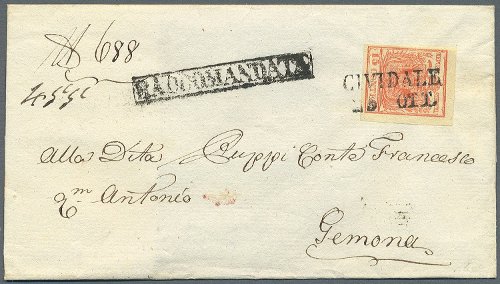 N 688
RACCOMANDATA
CIVIDALE
Alla Dita Puppi Conte Francesco
qm Antonio
Gemona